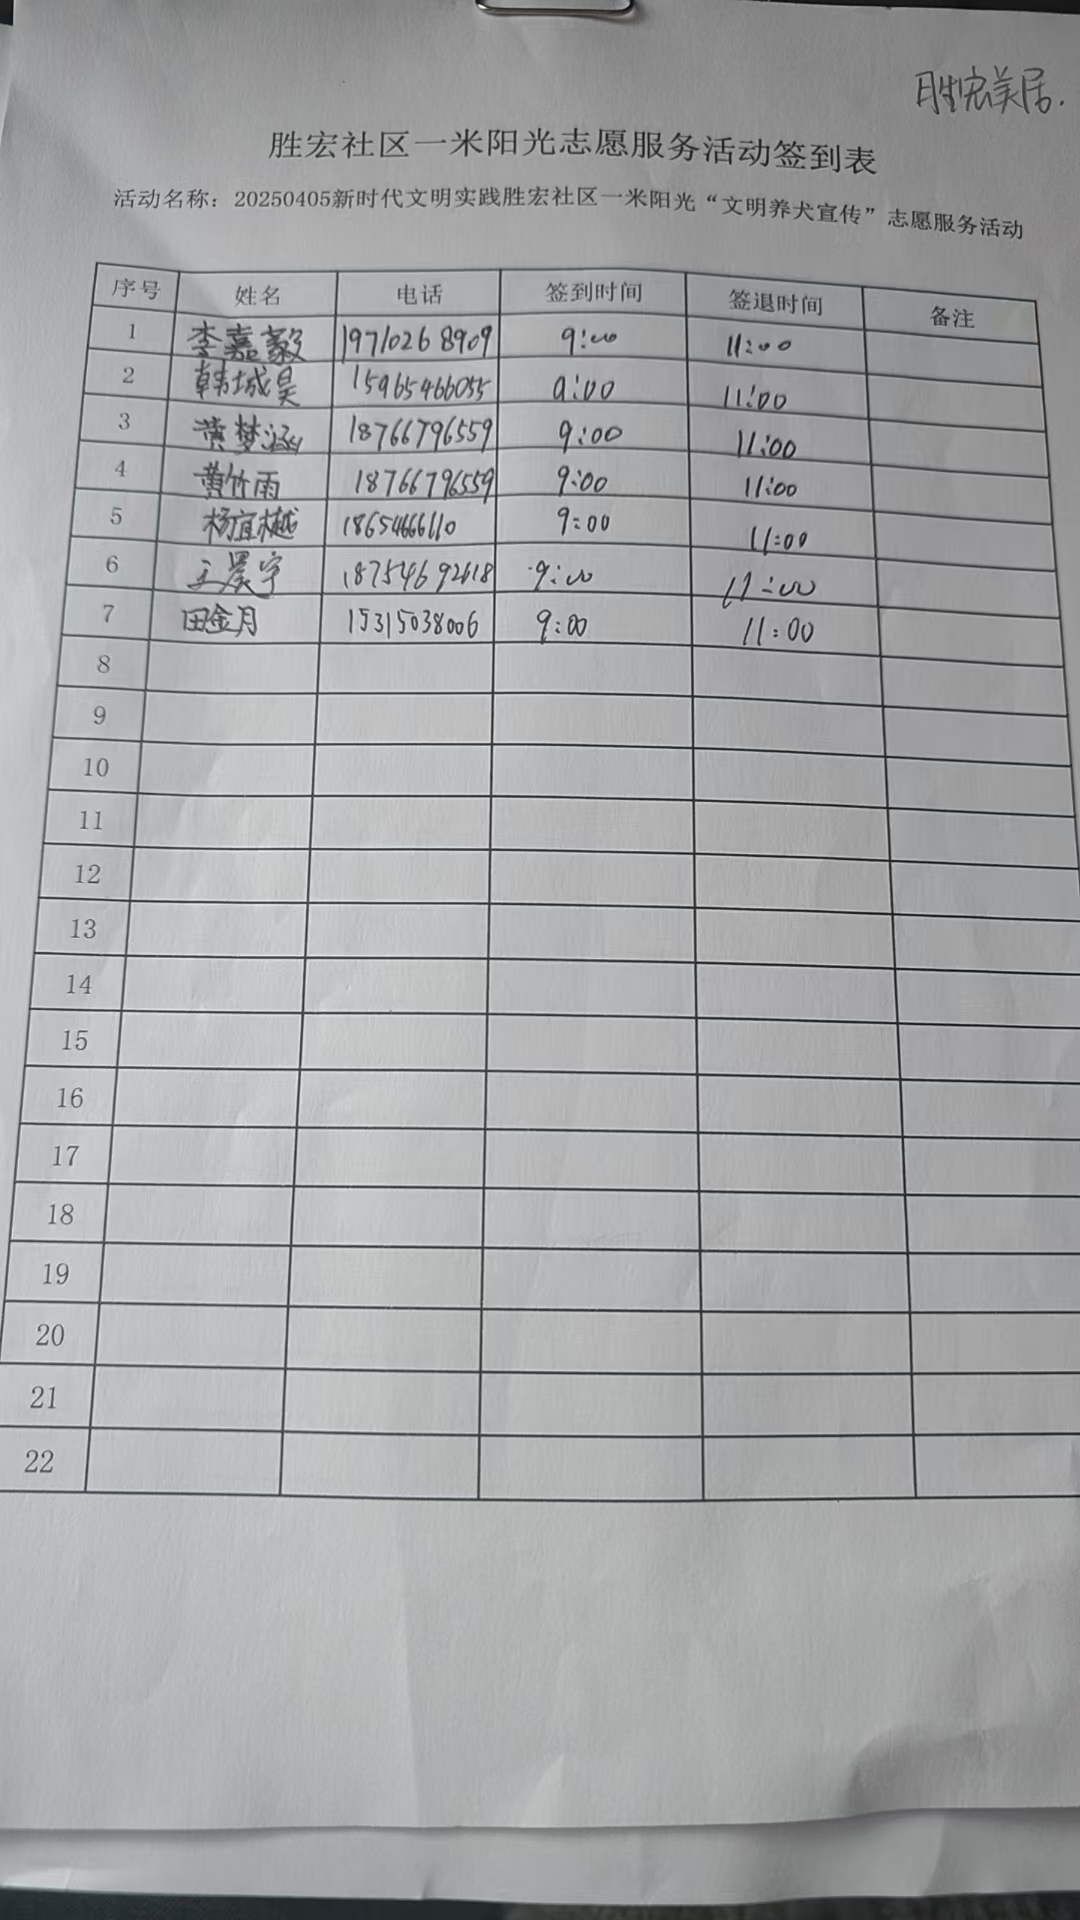 胜宏美居.
胜宏社区一米阳光志愿服务活动签到表
活动名称：20250405新时代文明实践胜宏社区一米阳光“文明养犬宣传”志愿服务活动
序号 姓名 电话 签到时间 签退时间 备注
1 李嘉毅 19710268909 9:00 11:00
2 韩城昊 15965466055 9:00 11:00
3 黄梦涵 18766796559 9:00 11:00
4 黄竹雨 18766796559 9:00 11:00
5 杨宜樾 18654666110 9:00 11:00
6 王晨宇 18754692618 9:00 11:00
7 田金月 15315038006 9:00 11:00
8
9
10
11
12
13
14
15
16
17
18
19
20
21
22